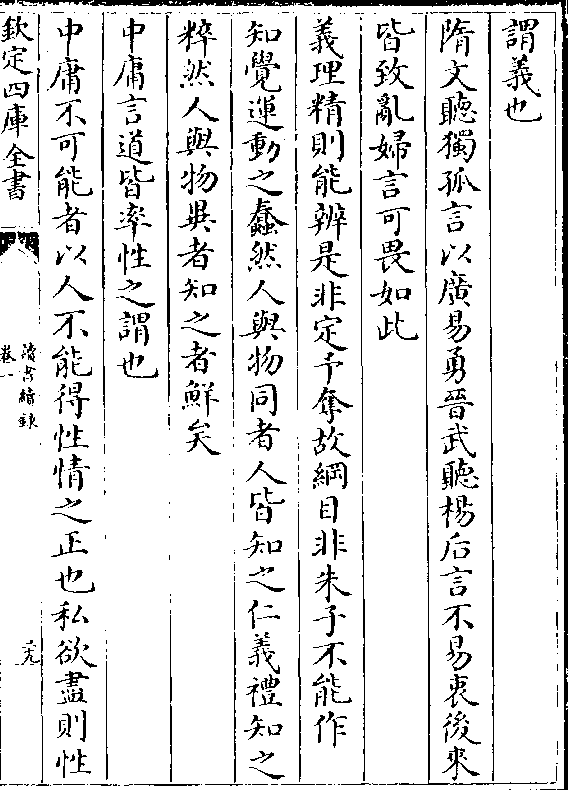 謂義也
隋文聽獨孤言以廣易勇晉武聽楊后言不易衷後來
皆致亂婦言可畏如此
義理精則能辨是非定予奪故綱目非朱子不能作
知覺運動之蠢然人與物同者人皆知之仁義禮知之
粹然人與物異者知之者鮮矣
中庸言道皆率性之謂也
中庸不可能者以人不能得性情之正也私欲盡則性
欽定四庫全書
讀書續錄
卷一
二九